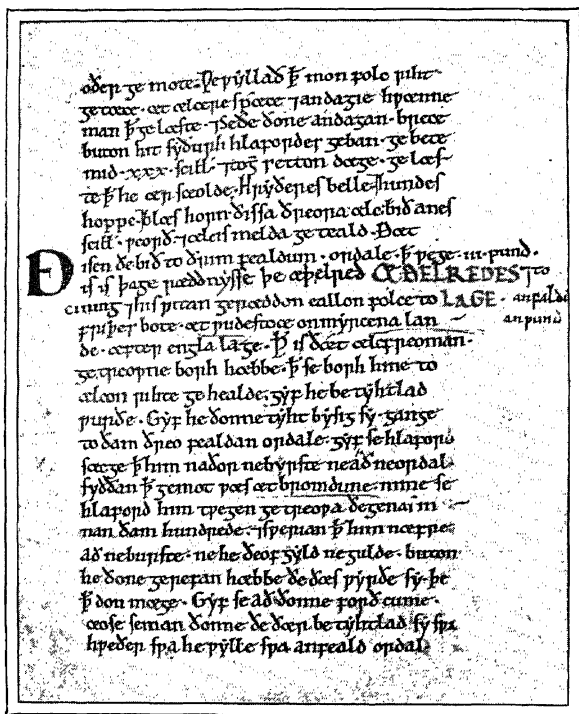 oðer ge mote. Ƿe ƿyllað ꝥ mon folc riht
getæce. æt ælcere spæce ⁊ andagie hƿænne
man ꝥ ge læste. ⁊ se ðe ðone andagan brece
buton hit sy ðurh hlafordes geban. ge bete
mid .xxx. scill. ⁊ to ge setton dæge. ge læs-
te ꝥ he ær sceolde. Hryðeres belle. hundes
hoppe. blæs horn. ðissa ðreora ælc bið anes
scill. ƿeorð. ⁊ ælc is melda ge teald. Ðæt
isen ðe bið to ðrim fealdum. ordale. ꝥ ƿege .iii. pund.
Ðis is þa ge rædnysse þe æþelred ÆÐELREDES ⁊ to
cining ⁊ his ƿitan geræddon eallon folce to LAGE. anfealdū
friþes bote. æt ƿudestoce on myrcena lan an pund
de. æfter engla lage. ꝥ is ðæt ælc freoman.
ge treoƿne borh hæbbe. ꝥ se borh hine to
ælcon rihte ge healde. gyf he be tyhtlad
ƿurðe. Gyf he ðonne tyht bysig sy. gange
to ðam ðreo fealdan ordale. gyf se hlaford
sæcge ꝥ him naðor ne byrste ne að ne ordal.
syððan ꝥ gemot ƿæs æt bromdune. nime se
hlaford him tƿegen ge treoƿa ðegenas in
nan ðam hundrede. ⁊ sƿerian ꝥ him næfre
að ne burste. ne he ðeof gyld ne gulde. buton
he ðone gerefan hæbbe ðe ðæs ƿyrðe sy. þe
ꝥ don mæge. Gyf se að ðonne forð cume.
ceose se man ðonne ðe ðær be tyhtlad sy sƿa
hƿeðer sƿa he ƿylle sƿa anfeald ordal